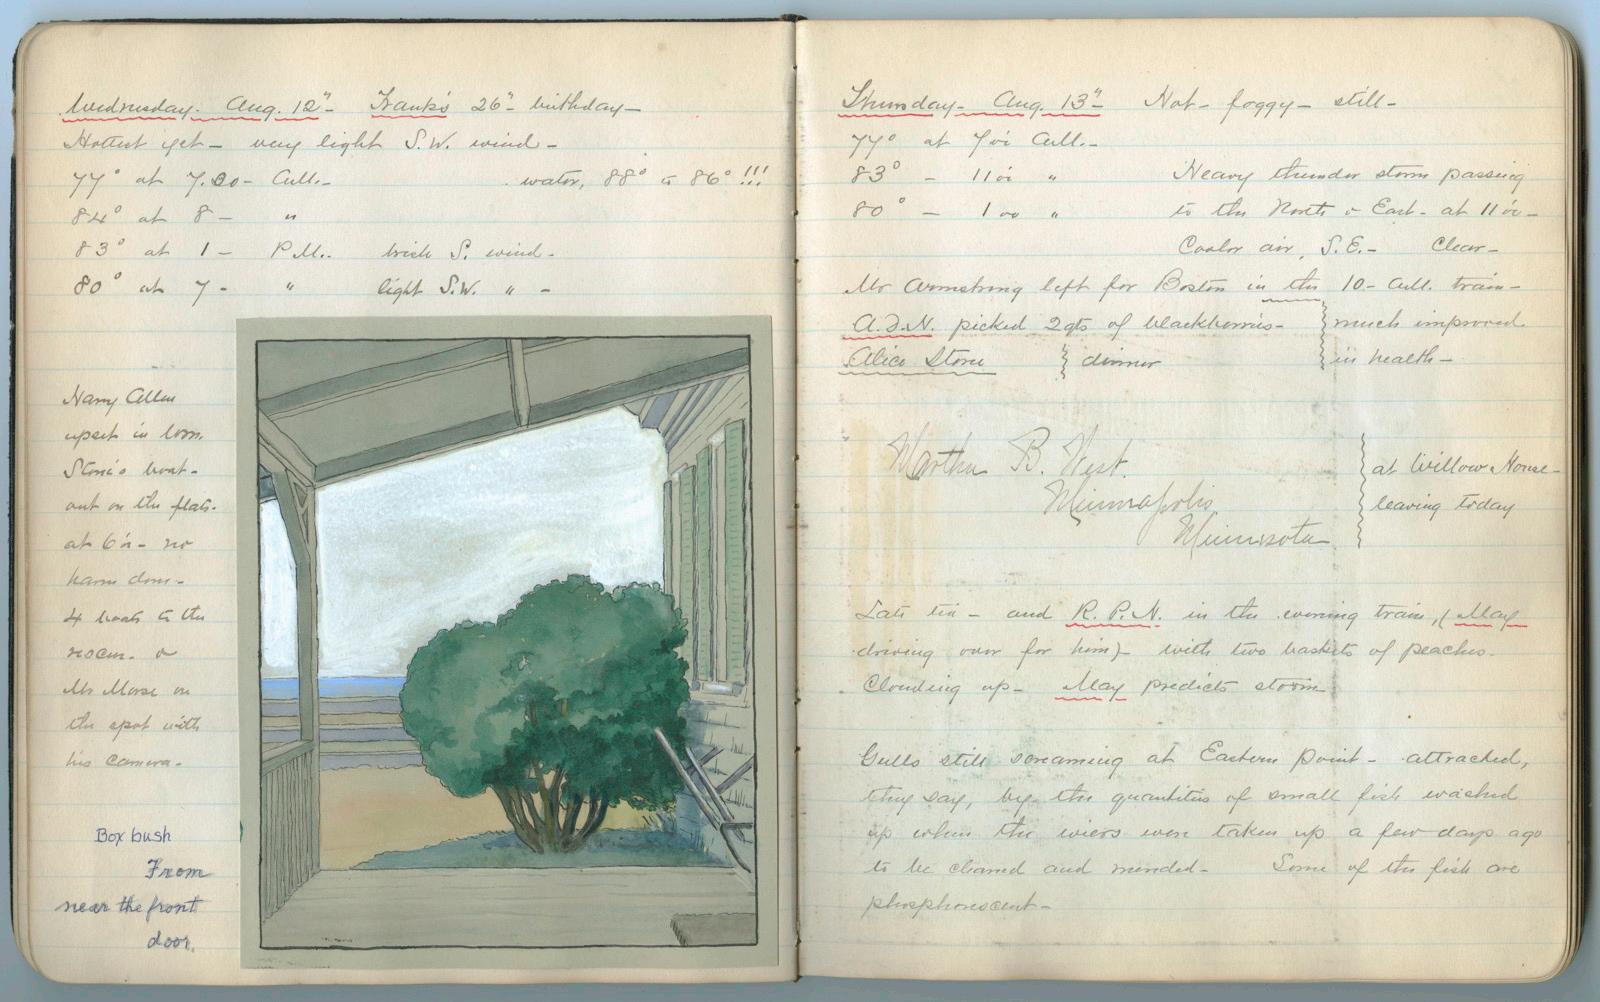 Wednesday. Aug. 12" - Frank's 26" - birthday -
Hottest yet - very light S.W. wind -
77° at 7.30 - A.M. - water, 88° to 86° !!!
84° at 8 - "
83° at 1 - P.M. - brisk S. wind -
80° at 7 - " light S.W. " -
Harry Allen
upset in
Stone's boat -
out on the flats -
at 6 - no
harm done -
4 boats to the
rescue - &
Mr Morse on
the spot with
his camera -
Box bush
From
near the front
door.
Thursday - Aug. 13" - Hot - foggy - still -
77° at 7 A.M. -
83° - 11 " Heavy thunder storm passing
80° - 1 00 " to the North & East - at 11 -
Cooler air, S.E. - Clear -
Mr Armstrong left for Boston in the 10 - A.M. train -
picked 2 qts of blackberries - much improved
Alice Stone } dinner in health -
Martha B. West.
Minneapolis
Minnesota
at Willow House -
leaving today
Late tea - and R. P. N. in the evening train, (May
driving over for him) - with two baskets of peaches.
Clouding up - May predicts storm
Gulls still screaming at Eastern Point - attracted,
they say, by the quantities of small fish washed
up when the wiers were taken up a few days ago
to be cleaned and mended - Some of the fish are
phosphorescent -